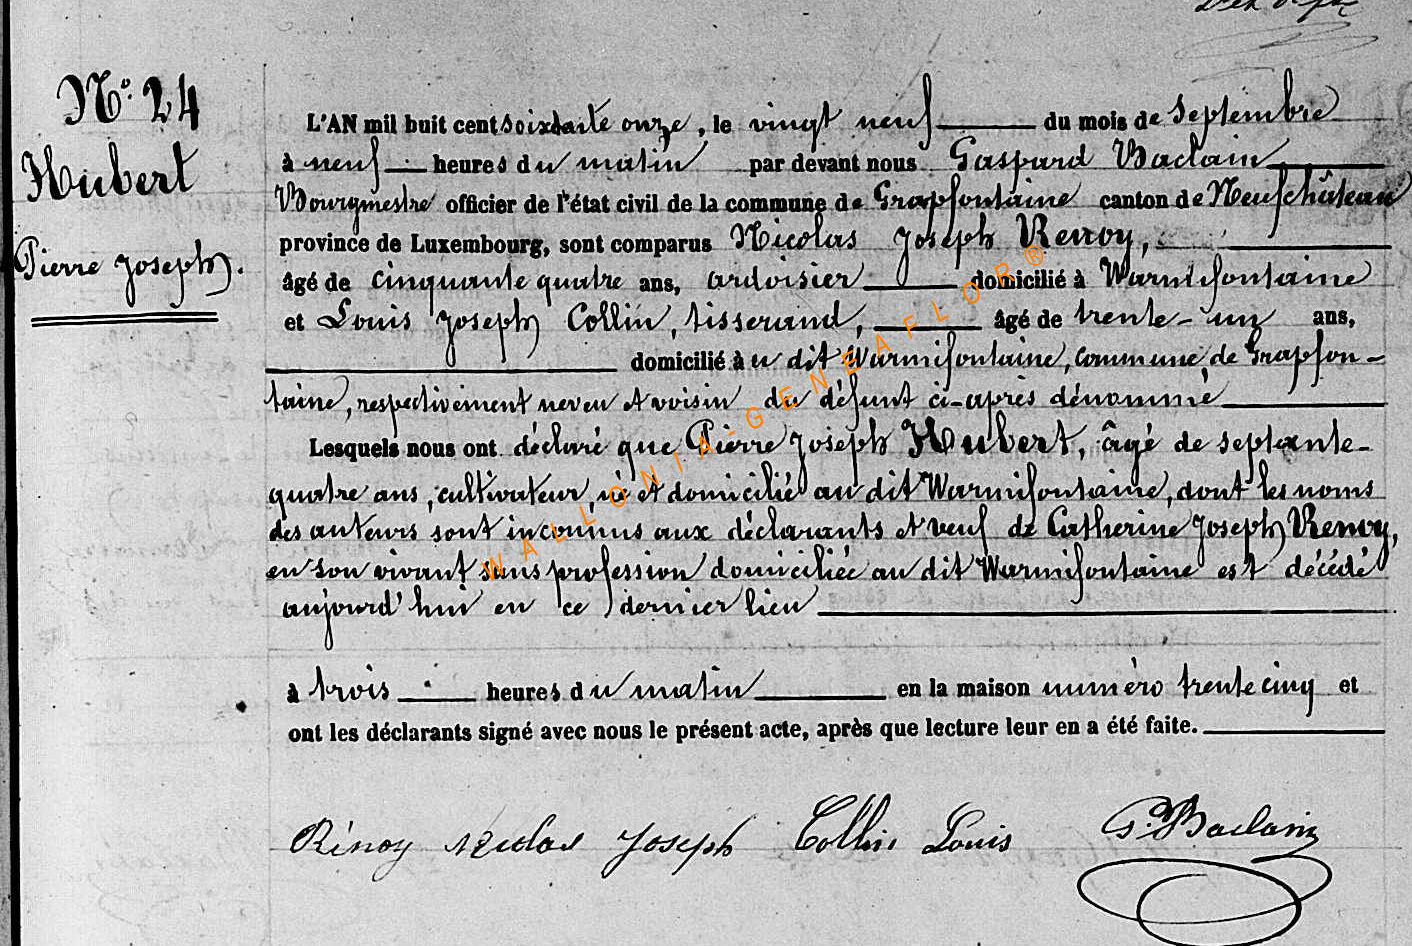 N° 24
Hubert
Pierre Joseph.
L'AN mil huit cent soixante onze, le vingt neuf du mois de Septembre
à neuf heures du matin par devant nous Gaspard Baclain
Bourgmestre officier de l'état civil de la commune de Grapfontaine canton de Neufchâteau
province de Luxembourg, sont comparus Nicolas Joseph Renoy,
âgé de cinquante quatre ans, ardoisier domicilié à Warmifontaine
et Louis Joseph Collin, tisserand, âgé de trente-un ans,
domicilié à u dit Warmifontaine, commune de Grapfon-
taine, respectivement neveu et voisin du défunt ci-après dénommé
Lesquels nous ont déclaré que Pierre Joseph Hubert, âgé de septante-
quatre ans, cultivateur, né et domicilié au dit Warmifontaine, dont les noms
des auteurs sont inconnus aux déclarants et veuf de Catherine Joseph Renoy,
en son vivant sans profession domiciliée au dit Warmifontaine est décédé
aujourd'hui en ce dernier lieu
à trois heures du matin en la maison numéro trente cinq et
ont les déclarants signé avec nous le présent acte, après que lecture leur en a été faite.
Rénoy Nicolas Joseph Collin Louis G. Baclain
WALLONIA-GENEAFLOR®